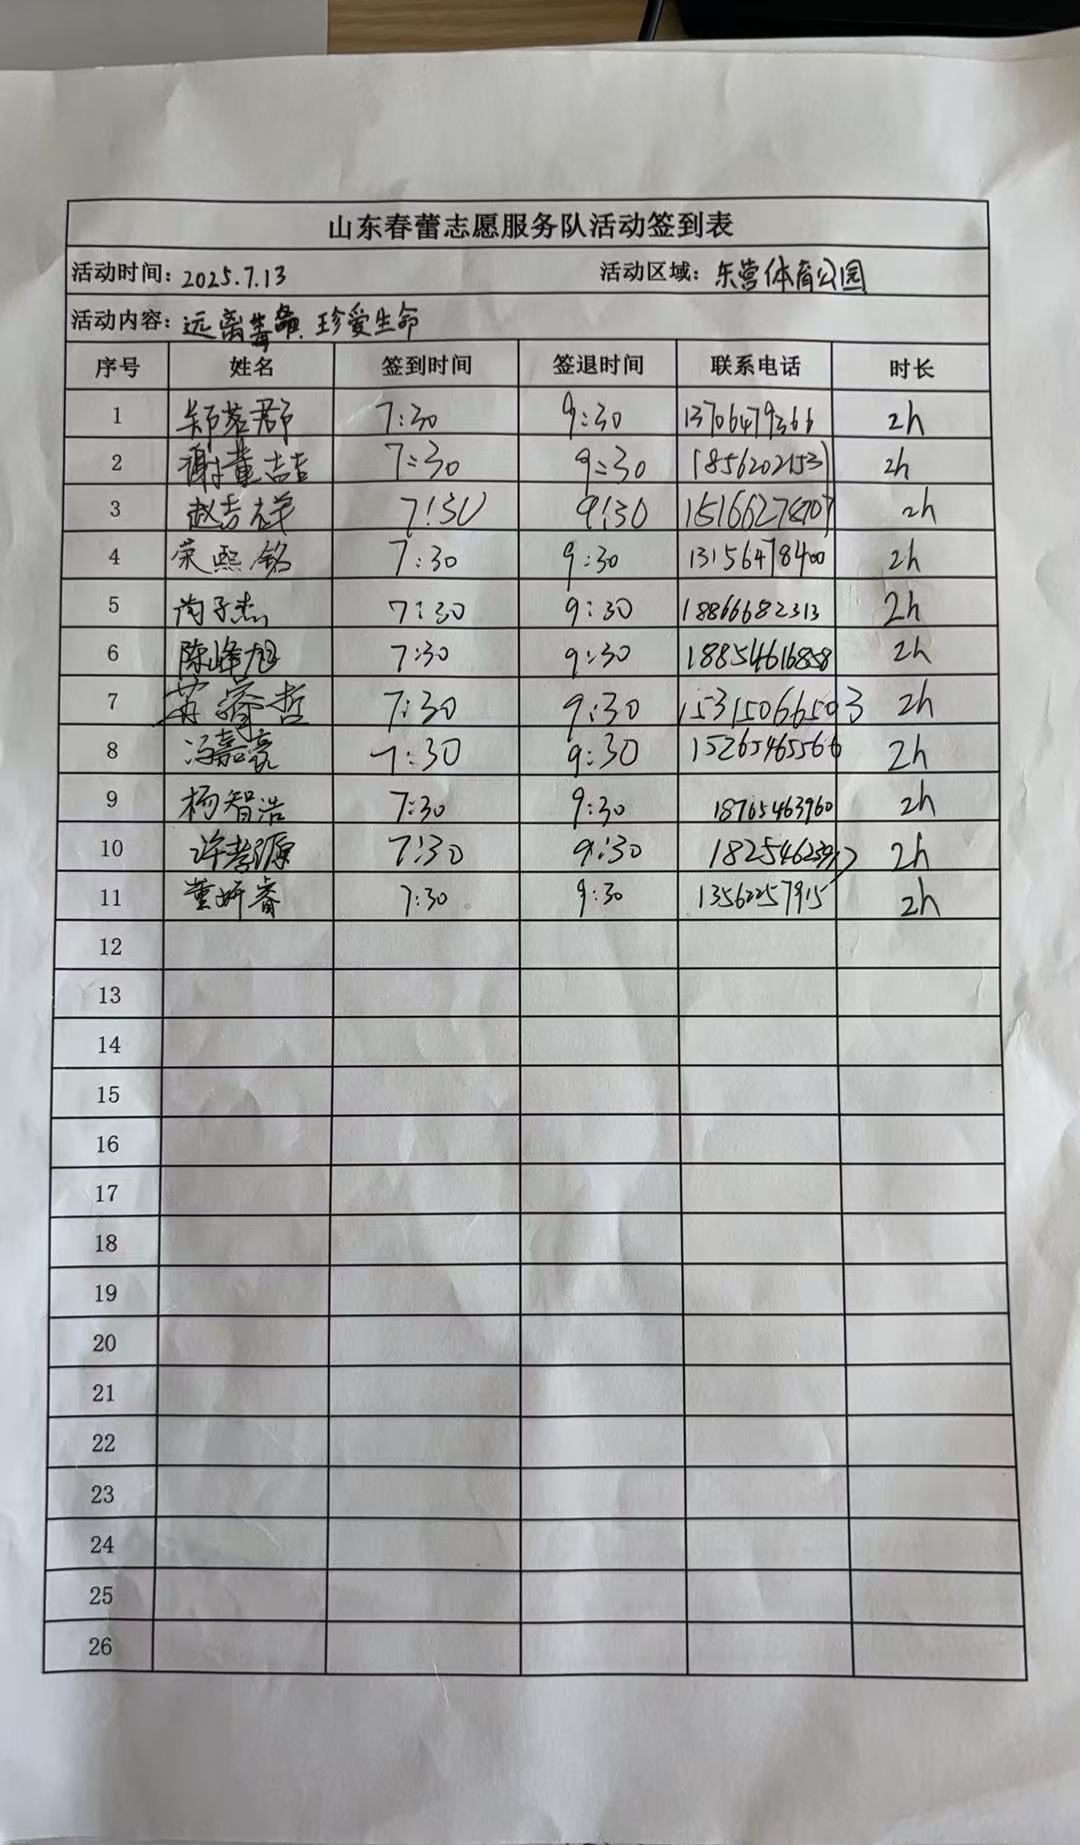 山东春蕾志愿服务队活动签到表
活动时间：2025.7.13 活动区域：东营体育公园
活动内容：远离毒品 珍爱生命
序号 姓名 签到时间 签退时间 联系电话 时长
1 郑茗郡 7:30 9:30 13706479366 2h
2 谢董吉吉 7:30 9:30 18562021531 2h
3 赵吉祥 7:30 9:30 2h
4 荣熙铭 7:30 9:30 13156478400 2h
5 尚子杰 7:30 9:30 18866682313 2h
6 陈峰旭 7:30 9:30 18854616858 2h
7 苏睿哲 7:30 9:30 15315066503 2h
8 冯嘉亮 7:30 9:30 15265465566 2h
9 杨智浩 7:30 9:30 18765463960 2h
10 许孝源 7:30 9:30 2h
11 董妍睿 7:30 9:30 13562257915 2h
12
13
14
15
16
17
18
19
20
21
22
23
24
25
26